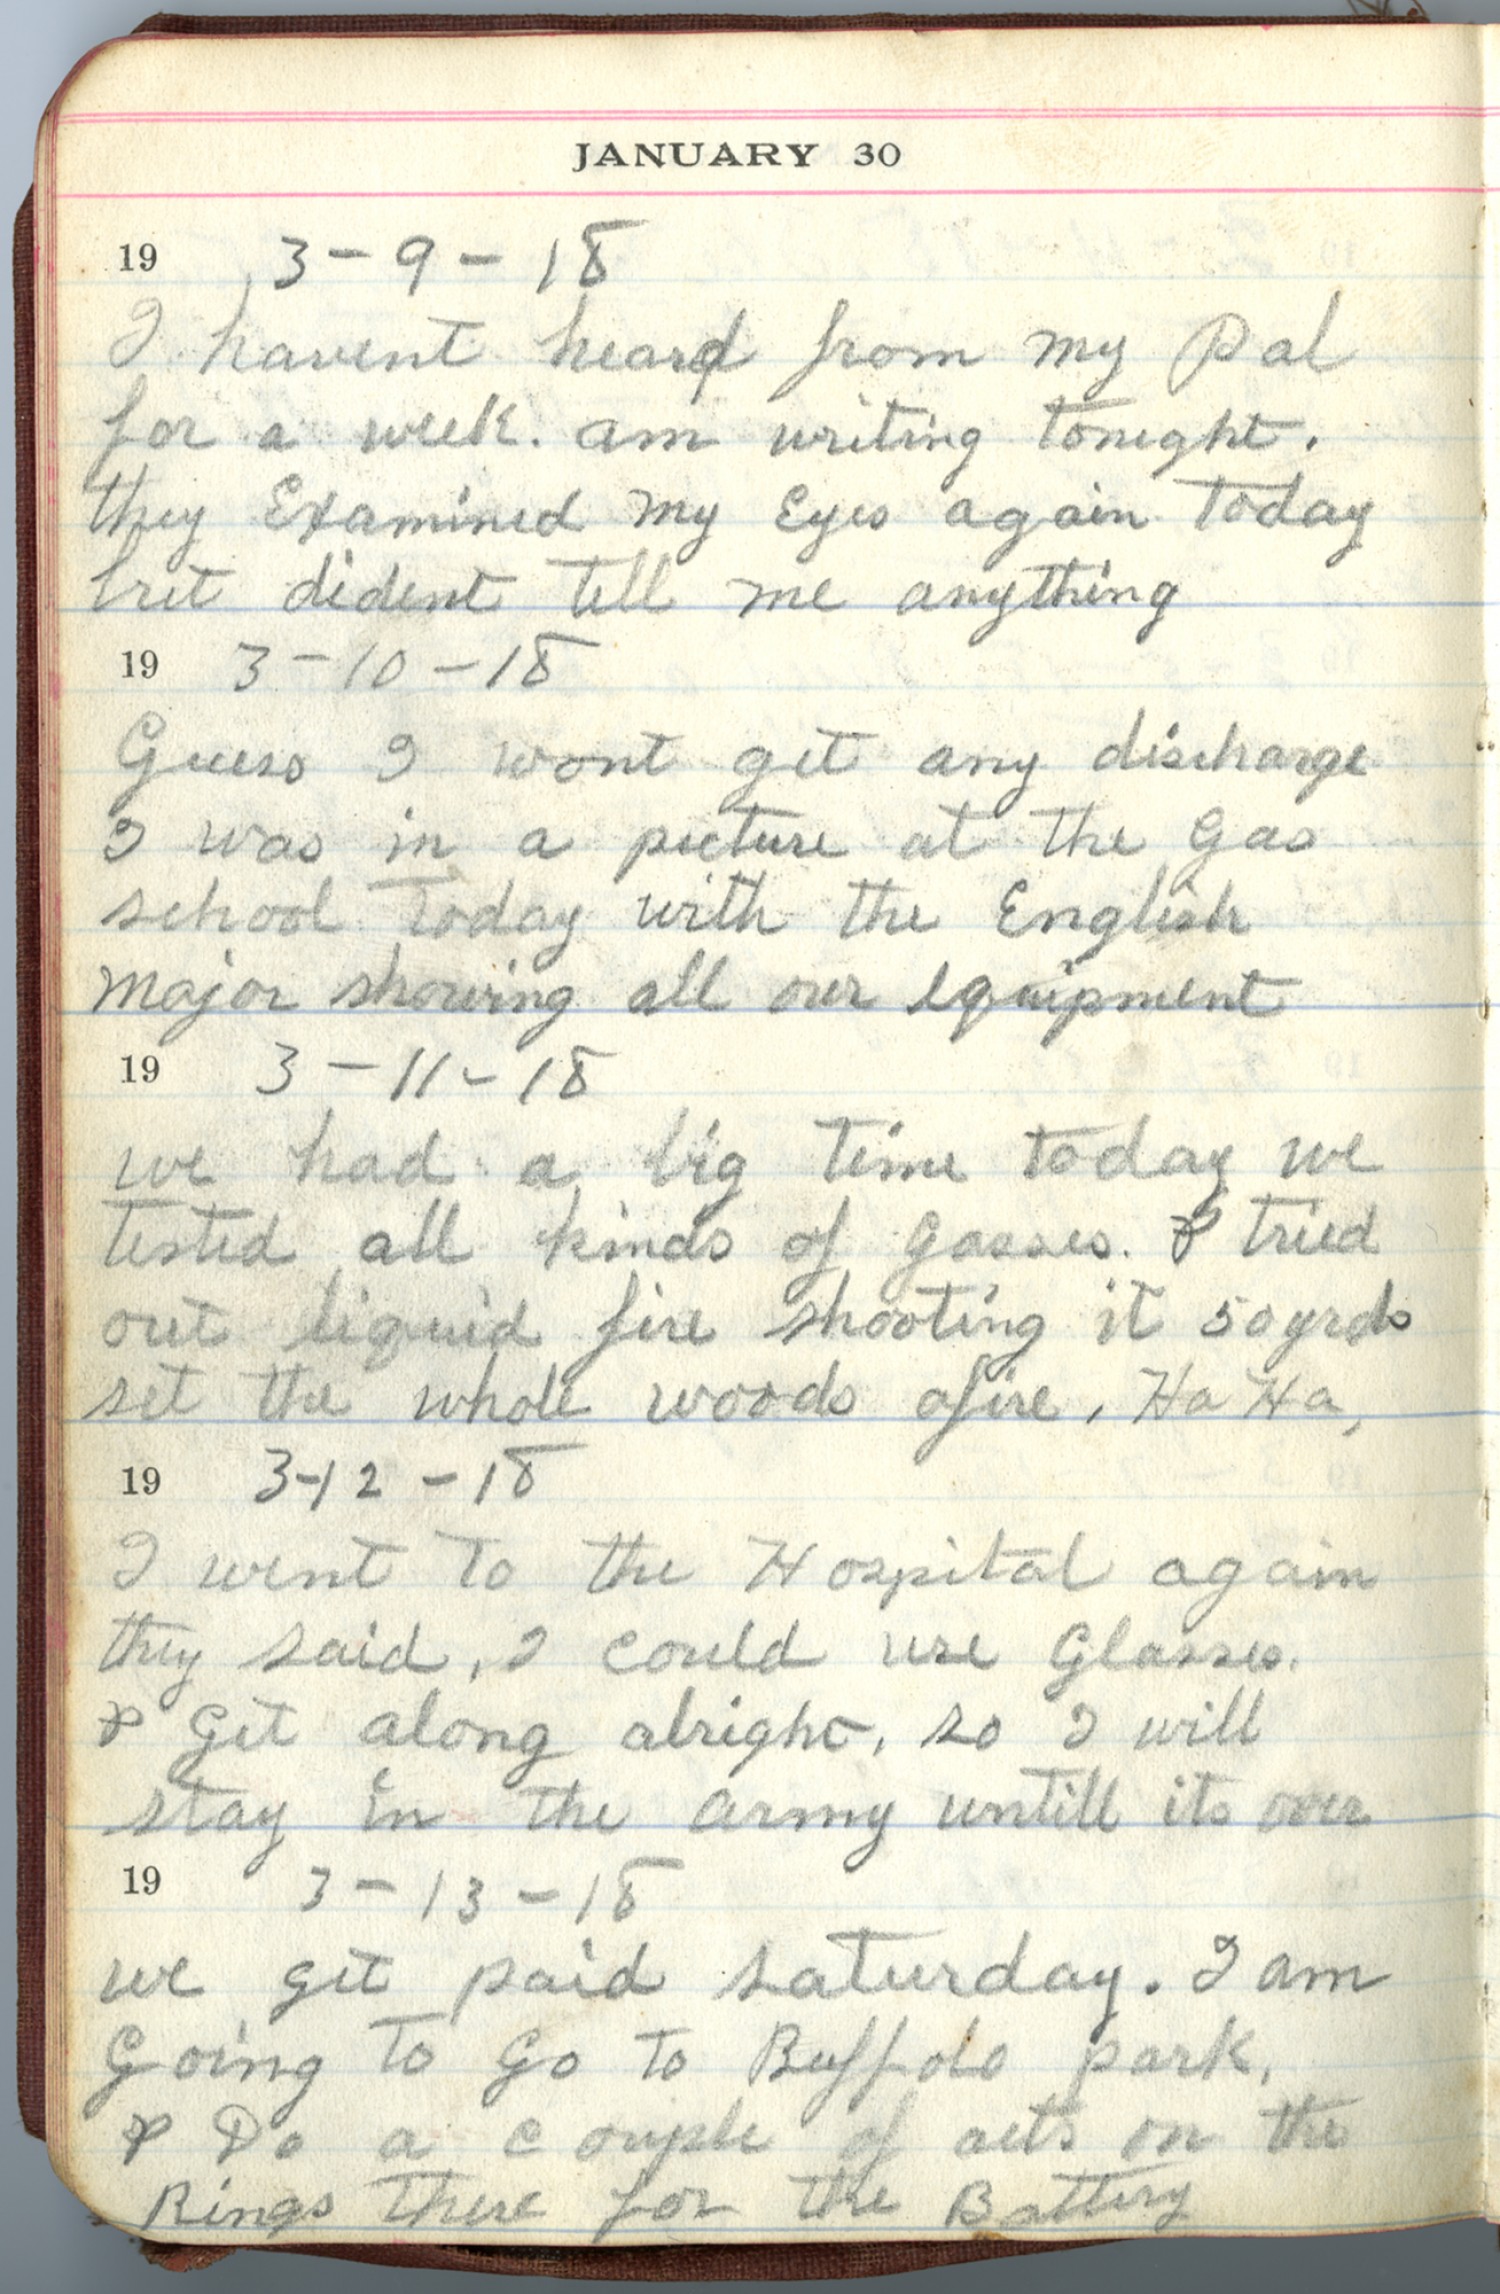 JANUARY 30
19 3-9-18
I havent heard from my Pal
for a week. am writing tonight.
they Examined my Eyes again today
but dident tell me anything
19 3-10-18
Guess I wont get any discharge
I was in a picture at the Gas
school Today with the English
Major showing all our equipment
19 3-11-18
we had a big time today we
tested all kinds of Gasses. & tried
out liquid fire shooting it 50 yrds
set the whole woods afire, Ha Ha,
19 3-12-18
I went to the Hospital again
they said, I could use Glasses.
& Get along alright, so I will
stay in the army untill its over
19 3-13-18
we get paid saturday. I am
Going to Go to Buffolo park,
& Do a couple of acts on the
Rings there for the Battery